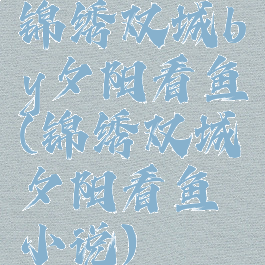 锦绣双城b
y夕阳看鱼
(锦绣双城
夕阳看鱼
小说)